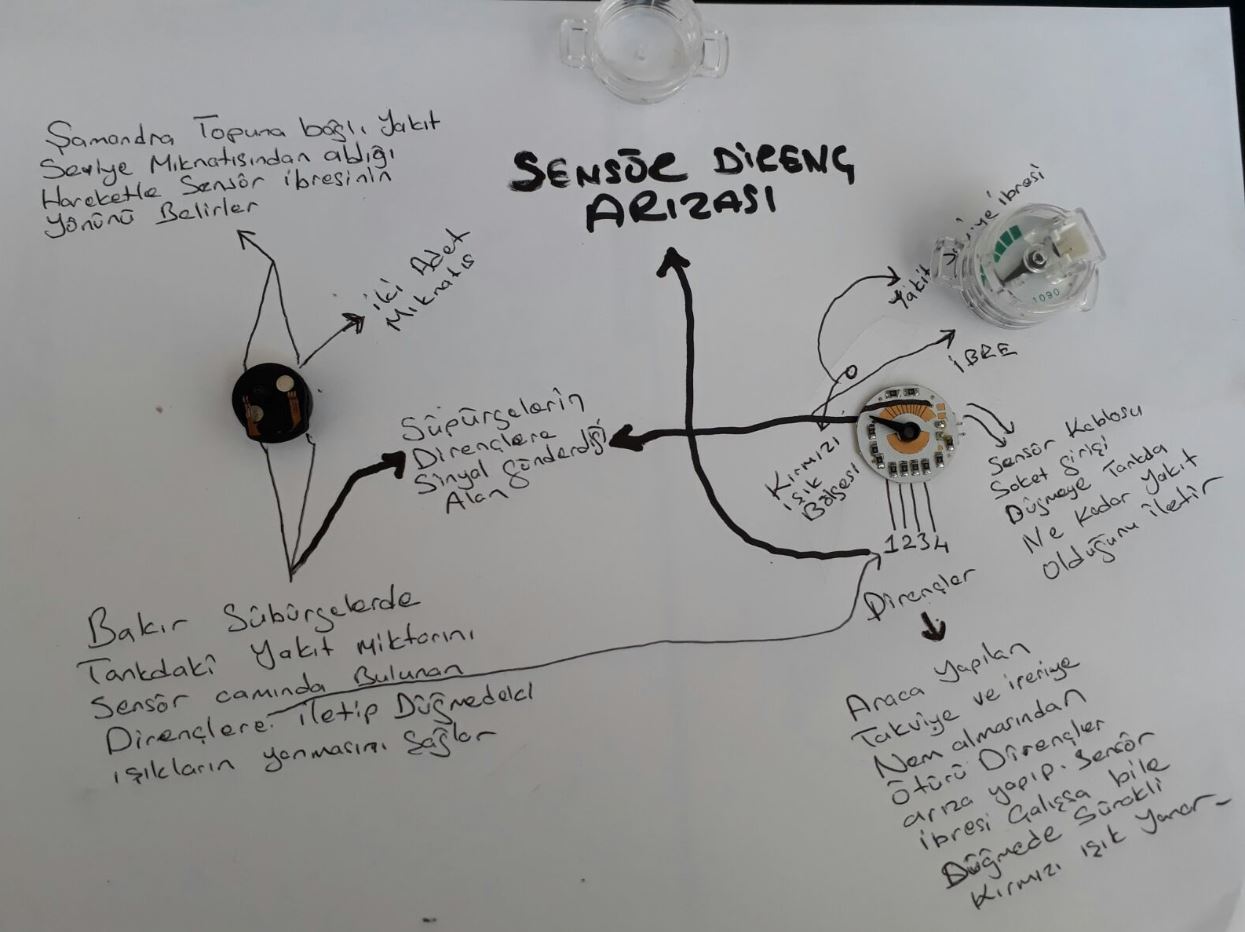 Şamandra Topuna bağlı Yakıt
Seviye Mıknatısından aldığı
Hareketle Sensör ibresinin
Yönünü Belirler
SENSÖR DİRENÇ
ARIZASI
İki Adet
Mıknatıs
Yakıt Seviye ibresi
1090
İBRE
Süpürgelerin
Dirençlere
Sinyal Gönderdiği
Alan
Kırmızı
ışık
Bölgesi
Sensör Kablosu
Soket Girişi
Düğmeye Tankda
Ne Kadar Yakıt
Olduğunu iletir
1234
Dirençler
Bakır Sübürgelerde
Tankdaki Yakıt Miktarını
Sensör camında Bulunan
Dirençlere iletip Düğmedeki
ışıkların yanmasını Sağlar
Araca Yapılan
Takviye ve içeriye
Nem almasından
Ötürü Dirençler
arıza yapıp. Sensör
ibresi Çalışsa bile
Düğmede Sürekli
Kırmızı ışık Yanar